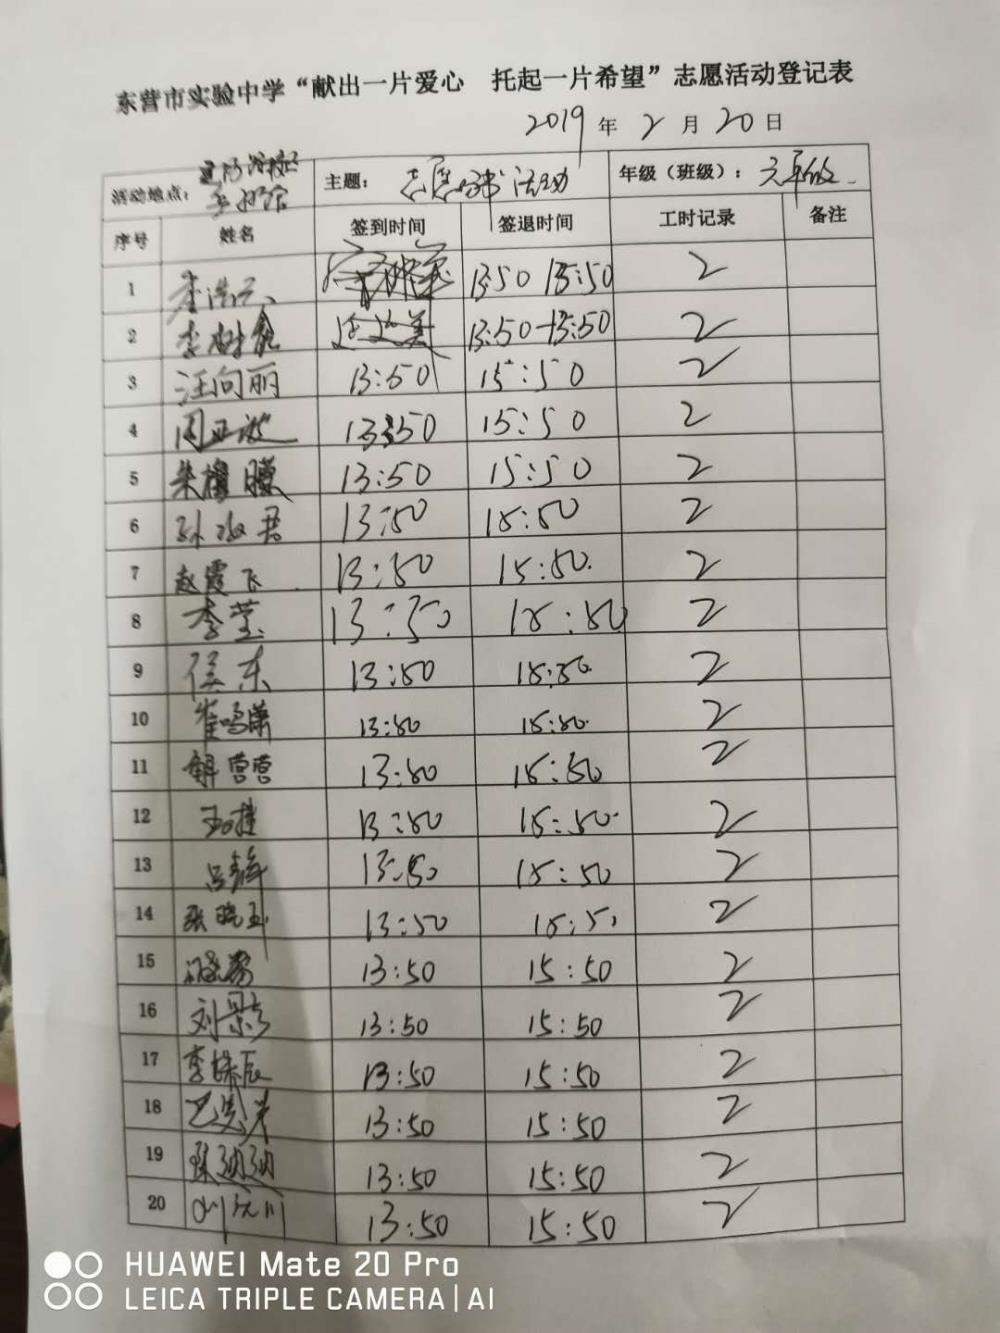 东营市实验中学“献出一片爱心 托起一片希望”志愿活动登记表
2019 年 2 月 20 日
活动地点： 主题： 志愿 活动 年级（班级）：
序号 姓名 签到时间 签退时间 工时记录 备注
1 13:50 15:50 2
2 李树 13:50-15:50 2
3 汪向丽 13:50 15:50 2
4 周亚波 13:50 15:50 2
5 朱 13:50 15:50 2
6 孙 君 13:50 15:50 2
7 赵霞飞 13:50 15:50 2
8 李莹 13:50 15:50 2
9 侯东 13:50 15:50 2
10 崔鸣 13:50 15:50 2
11 解营营 13:50 15:50 2
12 13:50 15:50 2
13 吕 13:50 15:50 2
14 张晓玉 13:50 15:50 2
15 13:50 15:50 2
16 刘影 13:50 15:50 2
17 李 辰 13:50 15:50 2
18 13:50 15:50 2
19 陈娜娜 13:50 15:50 2
20 13:50 15:50 2
HUAWEI Mate 20 Pro
LEICA TRIPLE CAMERA | AI